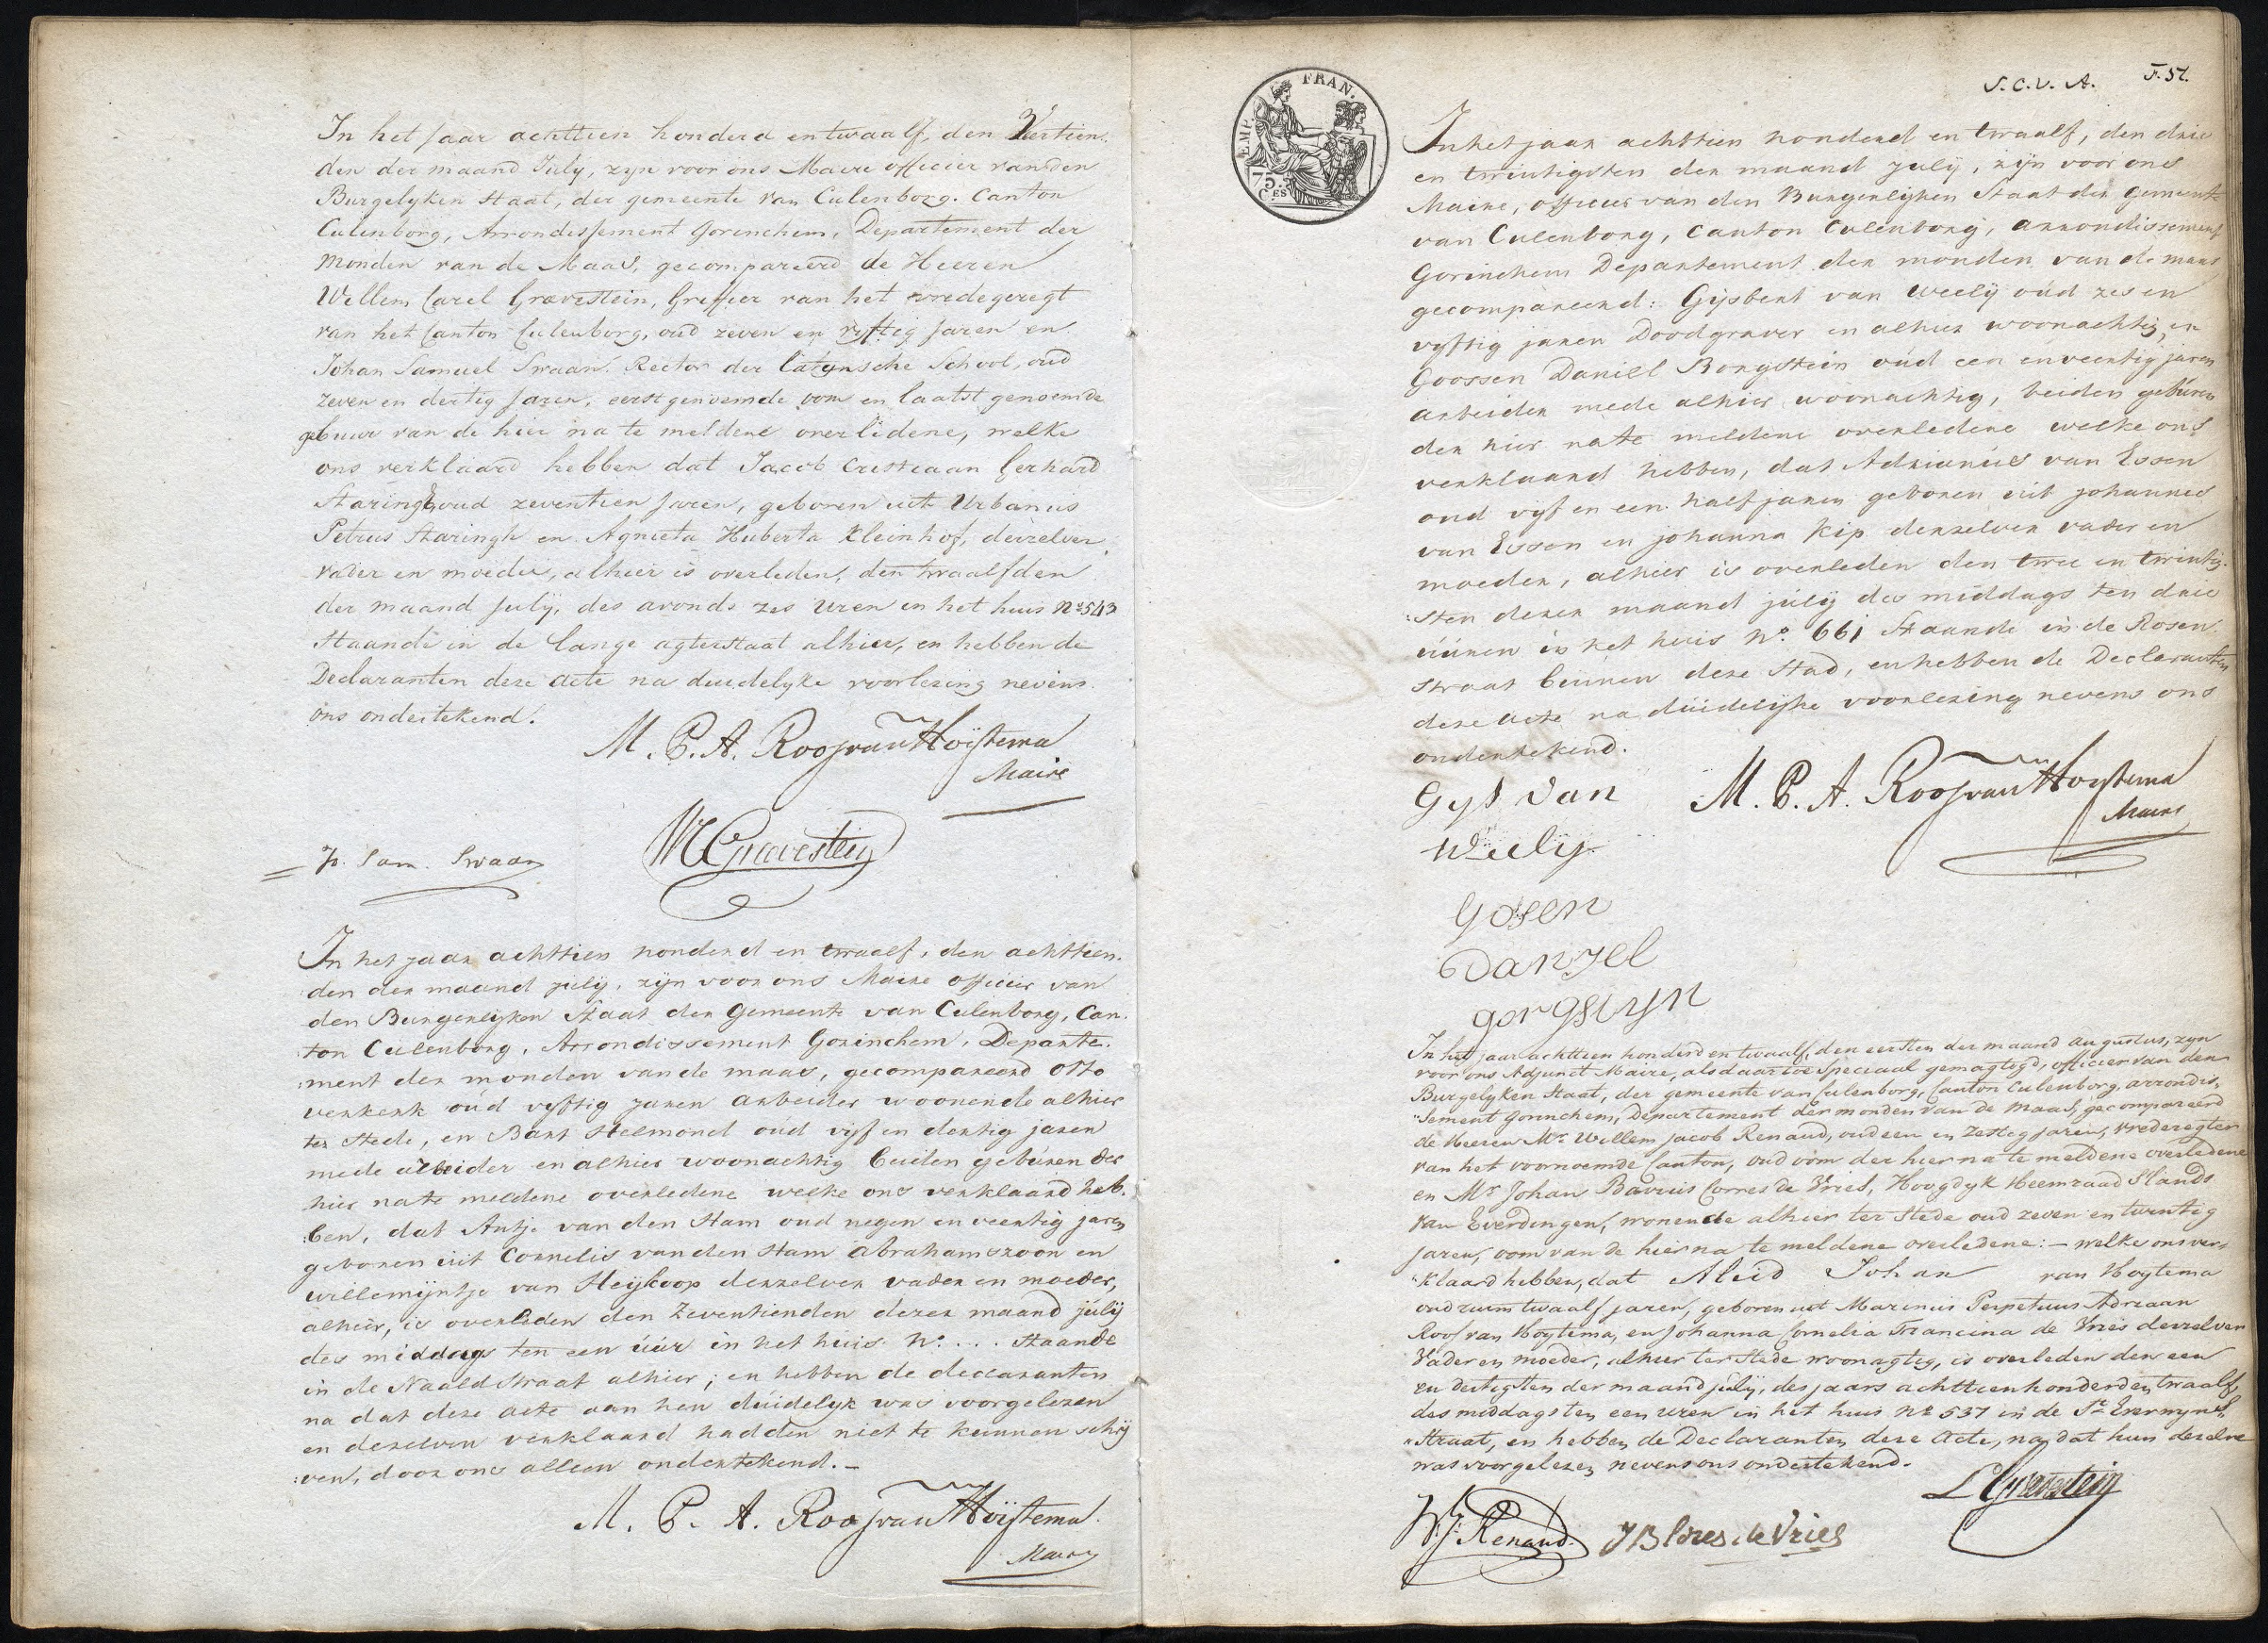 In het Jaar achttien honderd en twaalf, den Veertien-
den der maand July, zyn voor ons Maire officier van den
Burgelyken Staat, der gemeente van Culenborg. Canton
Culenborg, Arrondissement Gorinchem, Departement der
Monden van de Maas, gecompareerd de Heeren
Willem Carel Gravestein, Greffier van het vredegeregt
van het Canton Culenborg, oud zeven en vyftig Jaren en
Johan Samuel Swaan. Rector der latynsche School, oud
zeven en dertig Jaren, eerst genoemde oom en laatst genoemde
gebuur van de hier na te meldene overlidene, welke
ons verklaard hebben dat Jacob Cristiaan Gerhard
Staringh oud zeventien Jaren, geboren uit Urbanus
Petrus Staringh en Agnieta Huberta Kleinhof, deszelver
vader en moeder, alhier is overleden, den twaalfden
der maand July, des avonds zes uren in het huis No 543
Staande in de lange agterstraat alhier, en hebben de
Declaranten deze acte na duidelyke voorlezing nevens
ons ondertekend.
M. P. A. Roos van Hoijtema
Maire
WCGravestein
Jo. Sam. Swaan
In het jaar achttien honderd en twaalf, den achttien-
den der maand july, zijn voor ons Maire officier van
den Burgerlyken Staat der Gemeente van Culenborg, Can-
ton Culenborg, Arrondissement Gorinchem, Departe-
:ment der monden van de maas, gecompareerd Otto
verkerk oud vyftig jaren arbeider woonende alhier
ter Stede, en Bart Helmond oud vijf en dertig jaren
mede arbeider en alhier woonachtig beiden gebúren der
hier na te meldene overledene welke ons verklaard heb-
:ben, dat Antje van den Ham oud negen en veertig jaren
geboren uit Cornelis van den Ham Abrahamszoon en
willemijntje van Heijkoop derzelver vader en moeder,
alhier, is overleden den Zeventienden dezer maand júlij
des middags ten een úúr in het huis No. ... Staande
in de Naald Straat alhier; en hebben de declaranten
na dat deze acte aan hen dúidelyk was voorgelezen
en dezelven verklaard hadden niet te kunnen schrij
:ven, door ons alleen ondertekend. –
M. P. A. Roos van Hoijtema.
Maire
S.C.V.A. F. 51.
EMP. FRAN.
75. C.ES
In het jaar achttien honderd en twaalf, den drie
en twintigsten der maand july, zijn voor ons
Maire, officier van den Burgerlijken Staat der Gemeente
van Culenborg, Canton Culenborg, arrondissement
Gorinchem Departement der monden van de maas
gecompareerd: Gijsbert van Weelij oúd zes en
vyftig jaren Doodgraver en alhier woonachtig, en
Goossen Daniel Borgstein oúd een en veertig jaren
arbeider mede alhier woonachtig, beiden gebúren
der hier na te meldene overledene welke ons
verklaard hebben, dat Adrianús van Essen
oud vyf en een half jaren geboren uit johannes
van Essen en johanna Kip derzelver vader en
moeder, alhier is overleden den twee en twintig-
:sten dezer maand júlij des middags ten drie
úúren in het huis No. 661 Staande in de Rosen-
straat binnen deze Stad, en hebben de Declaranten
deze acte na dúidelijke voorlezing nevens ons
ondertekend.
Gijs van
Weelij
M. P. A. Roos van Hoijtema
Maire
Gosen
Danjel
gorgstyn
In het jaar achttien honderd en twaalf, den eersten der maand augustus, zyn
voor ons Adjunct Maire, als daartoe Speciaal gemagtigd, officier van den
Burgelyken Staat, der gemeente van Culenborg, Canton Culenborg, arrondis-
"sement Gorinchem, Departement der monden van de Maas, gecompareerd
de Heeren Mr. Willem Jacob Renaud, oud een en zestig jaren, vrederegter
van het voornoemde Canton, oud oom der hier na te meldene overledene
en Mr Johan Bavius Corres de Vries, Hoogdyk Heemraad Slands
van Everdingen, wonende alhier ter Stede oud zeven en twintig
Jaren, oom van de hier na te meldene overledene: – welke ons ver-
"klaard hebben, dat Aleid Johan van Hoytema
oud ruim twaalf jaren, geboren uit Marinus Perpetuus Adriaan
Roos van Hoytema, en Johanna Cornelia Francina de Vries derzelver
Vader en moeder, alhier ter Stede woonagtig, is overleden den een
en dertigsten der maand july, des jaars achttien honderd en twaalf,
des middags ten een uren in het huis No 537 in de St Everwyns-
"straat, en hebben de Declaranten deze Acte, na dat hun dezelve
was voorgelezen nevens ons ondertekend.
WJ Renaud.
JB Corres de Vries
L Gravestein